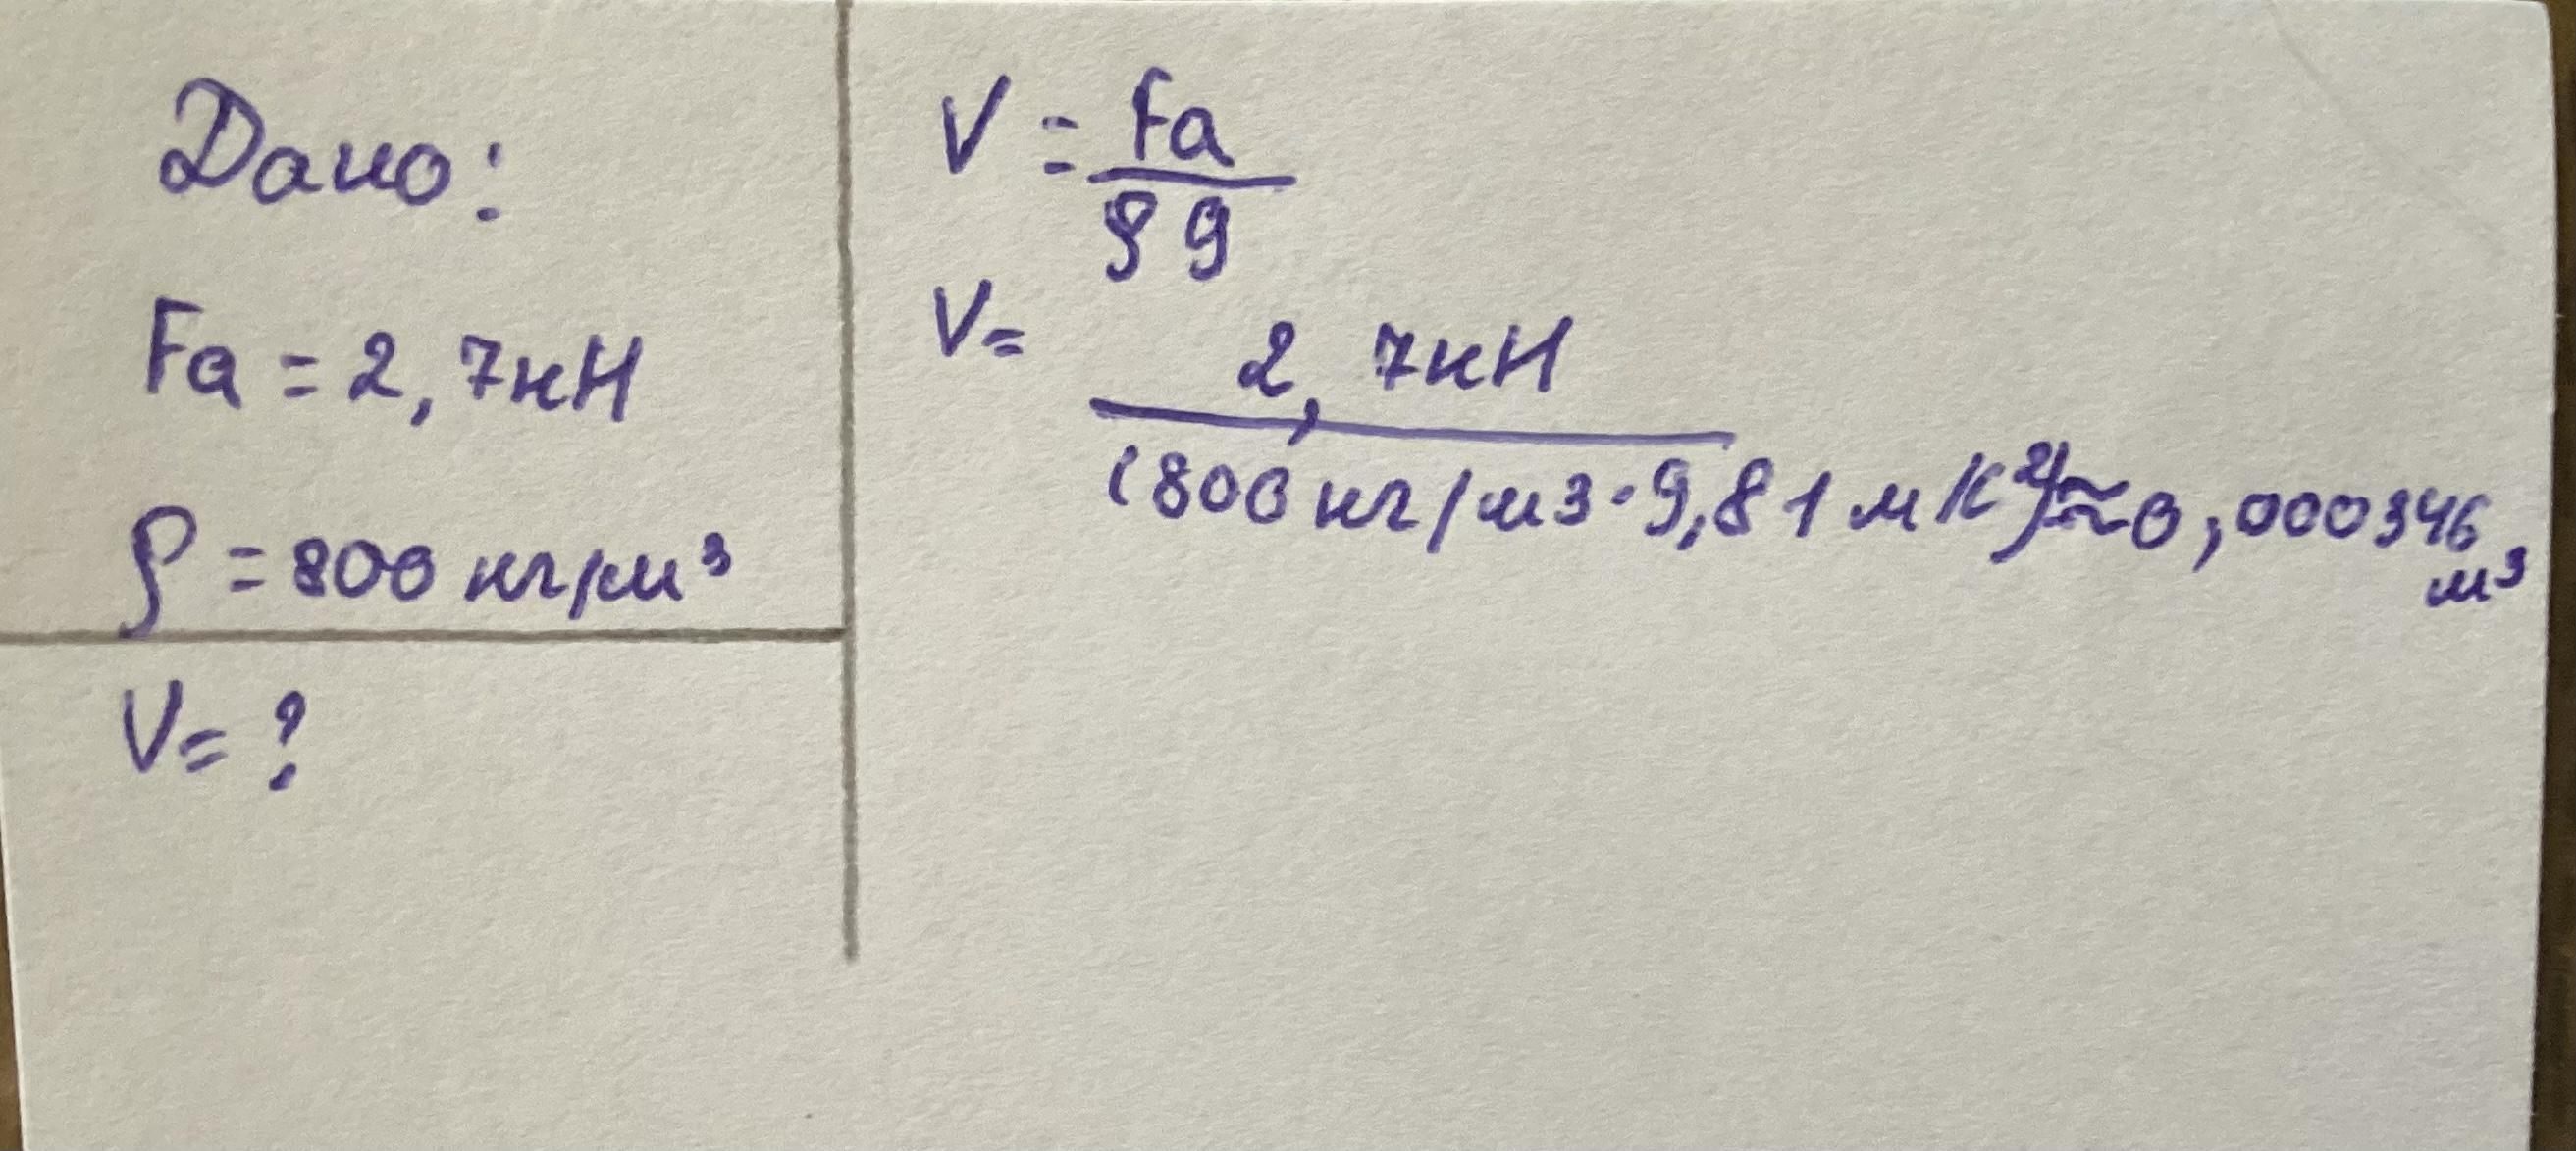 Дано:
Fa = 2,7кН
ρ = 800 кг/м³
V= ?
V = Fa
ρg
V=
2,7кН
(800 кг/м3·9,81 м/с²)≈0,000346
м³